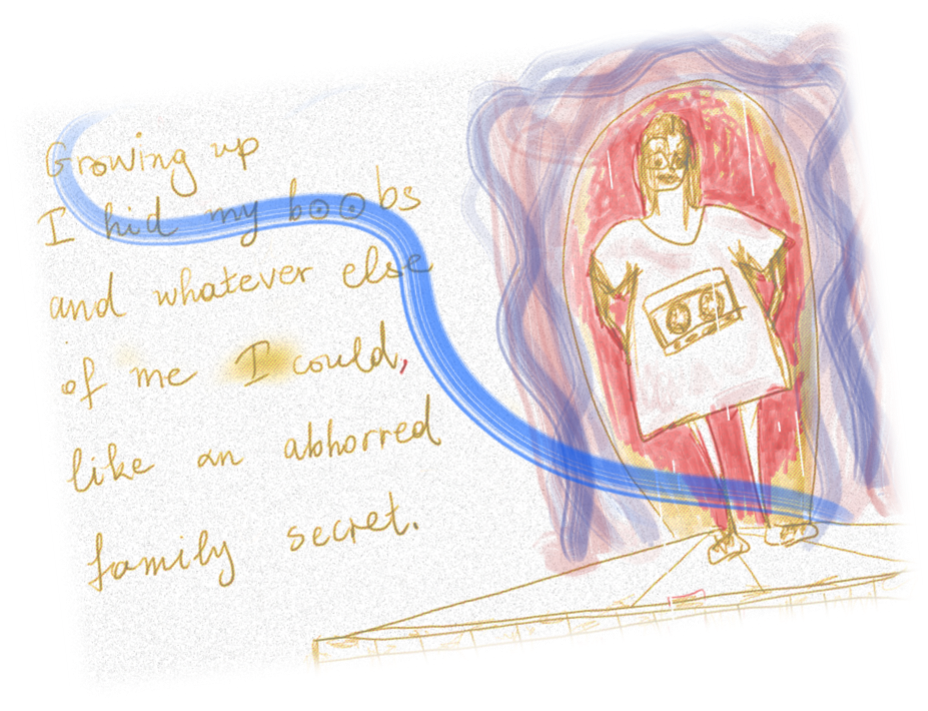 Growing up
I hid my boobs
and whatever else
of me I could,
like an abhorred
family secret.